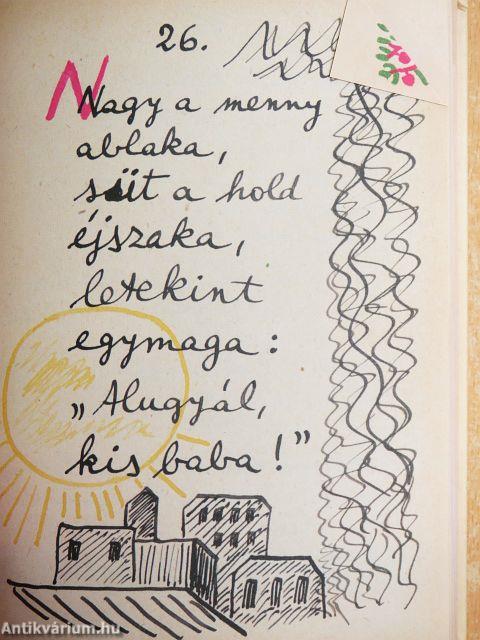 26.
Nagy a menny
ablaka,
süt a hold
éjszaka,
letekint
egymaga:
„Alugyál,
kis baba!”
Antikvárium.hu